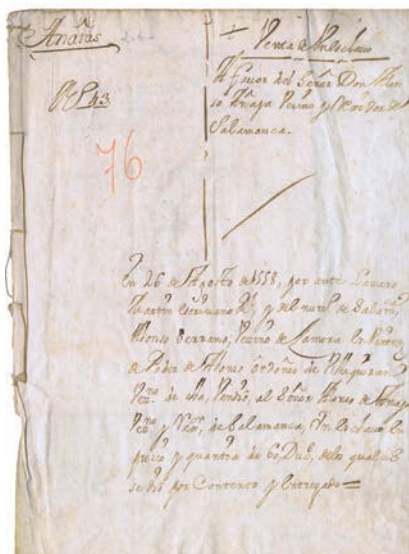 Anaías
Nº 43
76
Venta de Vn Esclauo
A fauor del Señor Don Alon
so Anaya Vezino y Rexidor de
Salamanca.
En 26 de Agosto de 1558, por ante Lazaro
Martin escriuano Rl. y del nume. de Salama,
Alonso Serrano, Vezino de Zamora En Virtud
de Poder de Alonso Ordoñez de
Vezo. de ella, Vendio, al Señor Alonso de Anaya
Vezo. y Rexor. de Salamanca, Vn Esclauo En
precio y quantia de 60, Dus, delo qual
se dio por Contento y Entregado =